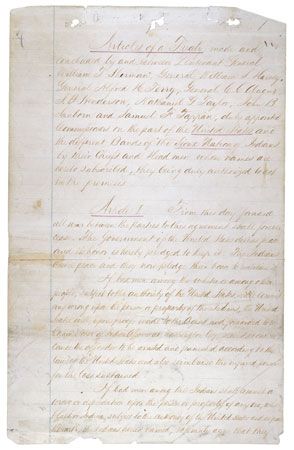 Articles of a Treaty made and
concluded by and between Lieutenant General
William T. Sherman, General William S. Harney,
General Alfred H. Terry, General C. C. Augur,
J. B. Henderson, Nathaniel G. Taylor, John B.
Sanborn and Samuel F. Tappan, duly appointed
Commissioners on the part of the United States and
the different Bands of the Sioux Nation of Indians
by their Chiefs and Head men whose names are
hereto subscribed, they being duly authorized to act
in the premises.
Article I. From this day forward
all war between the parties to this agreement shall forever
cease. The Government of the United States desires peace
and its honor is hereby pledged to keep it. The Indians
desire peace and they now pledge their honor to maintain it.
If bad men among the whites or among other
people, subject to the authority of the United States, shall commit
any wrong upon the person or property of the Indians, the United
States will
cause the offender to be arrested and punished according to the
laws of the United States and also reimburse the injured person
for the loss sustained.
If bad men among the Indians shall commit a
wrong or depredation upon the person or property of any one,
subject to the authority of the United States and at peace